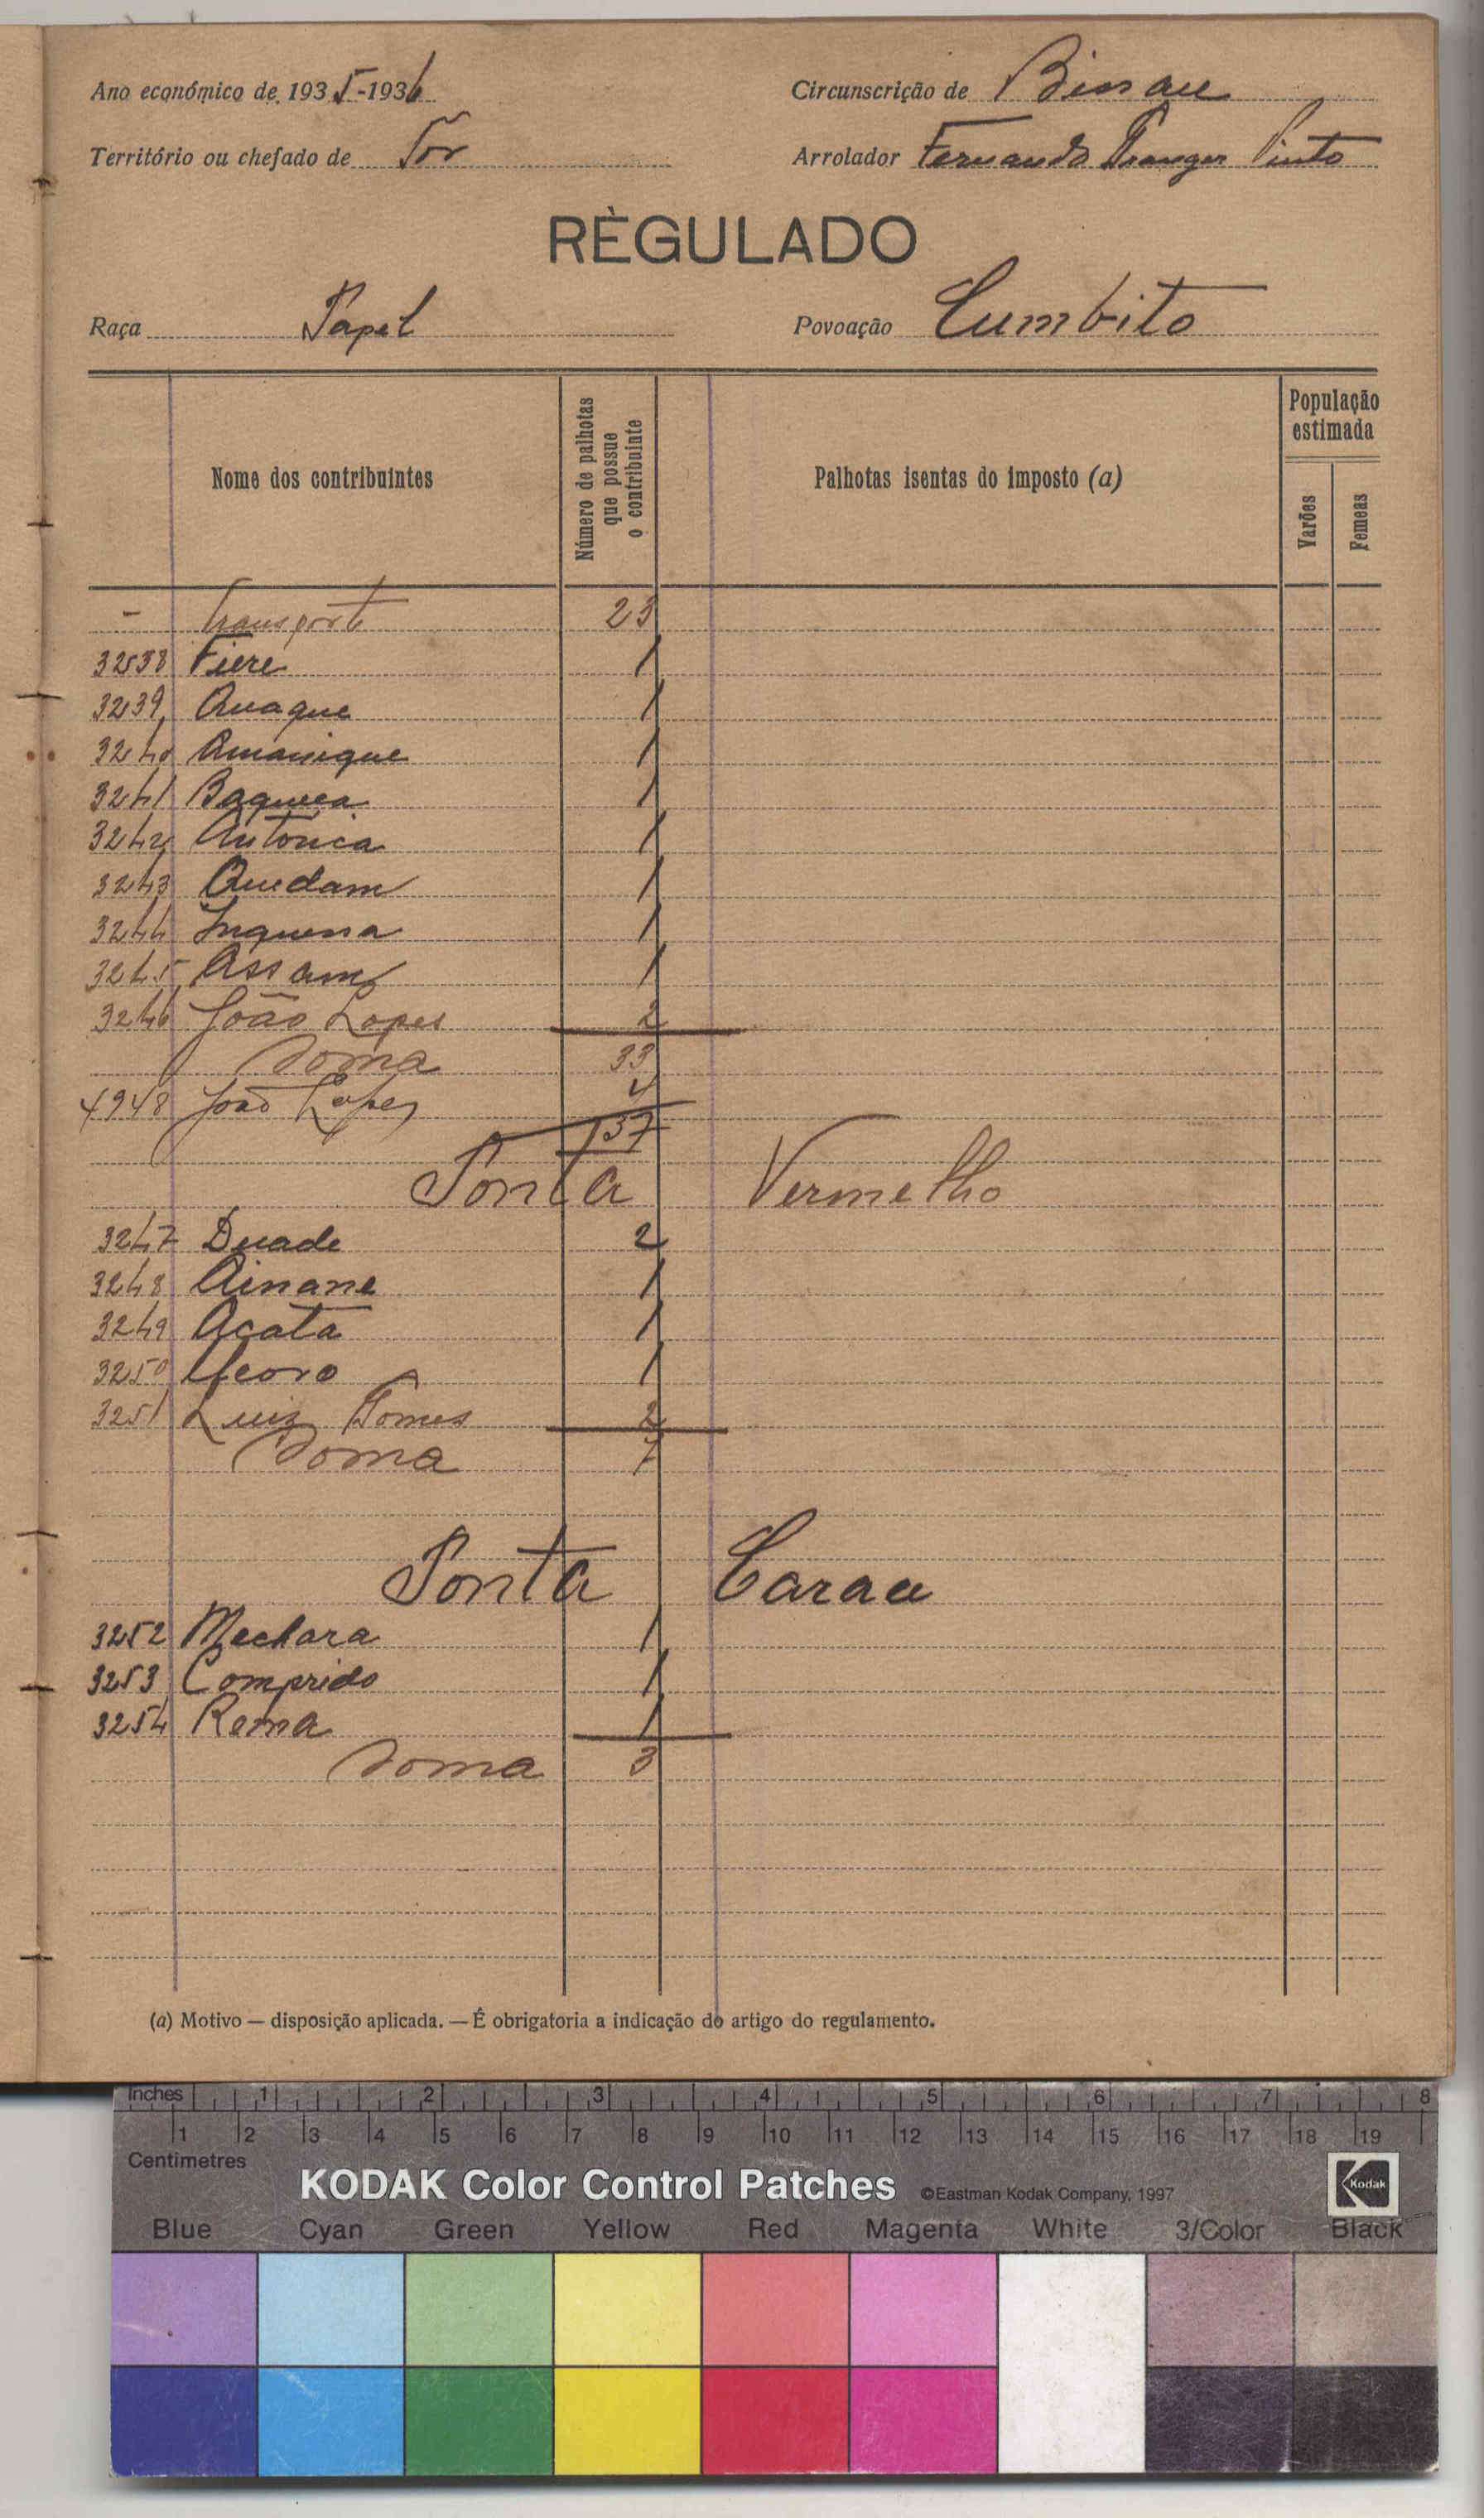 Ano económico de 1935-1936 Circunscrição de Bissau
Território ou chefado de Tor Arrolador Fernando Pinto
RÈGULADO
Raça Papel Povoação Cumbito
Nome dos contribuintes
Número de palhotas que possue o contribuinte
Palhotas isentas do imposto (a)
População estimada
Varões
Femeas
- Transporte 23
3238 Fieré 1
3239 Quaque 1
3240 Amanique 1
3241 1
3242 Antonica 1
3243 Quedam 1
3244 Inquessa 1
3245 Assam 1
3246 João Lopes 2
Soma 33
4948 João Lopes 4
37
Ponta Vermelho
3247 Duade 2
3248 Ainane 1
3249 Acata 1
3250 1
3251 Luiz Gomes 2
Soma 7
Ponta Carau
3252 Mechara 1
3253 Comprido 1
3254 Rema 1
Soma 3
(a) Motivo — disposição aplicada. — É obrigatoria a indicação do artigo do regulamento.
Inches 1 2 3 4 5 6 7 8
1 2 3 4 5 6 7 8 9 10 11 12 13 14 15 16 17 18 19
Centimetres
KODAK Color Control Patches ©Eastman Kodak Company, 1997 Kodak
Blue Cyan Green Yellow Red Magenta White 3/Color Black